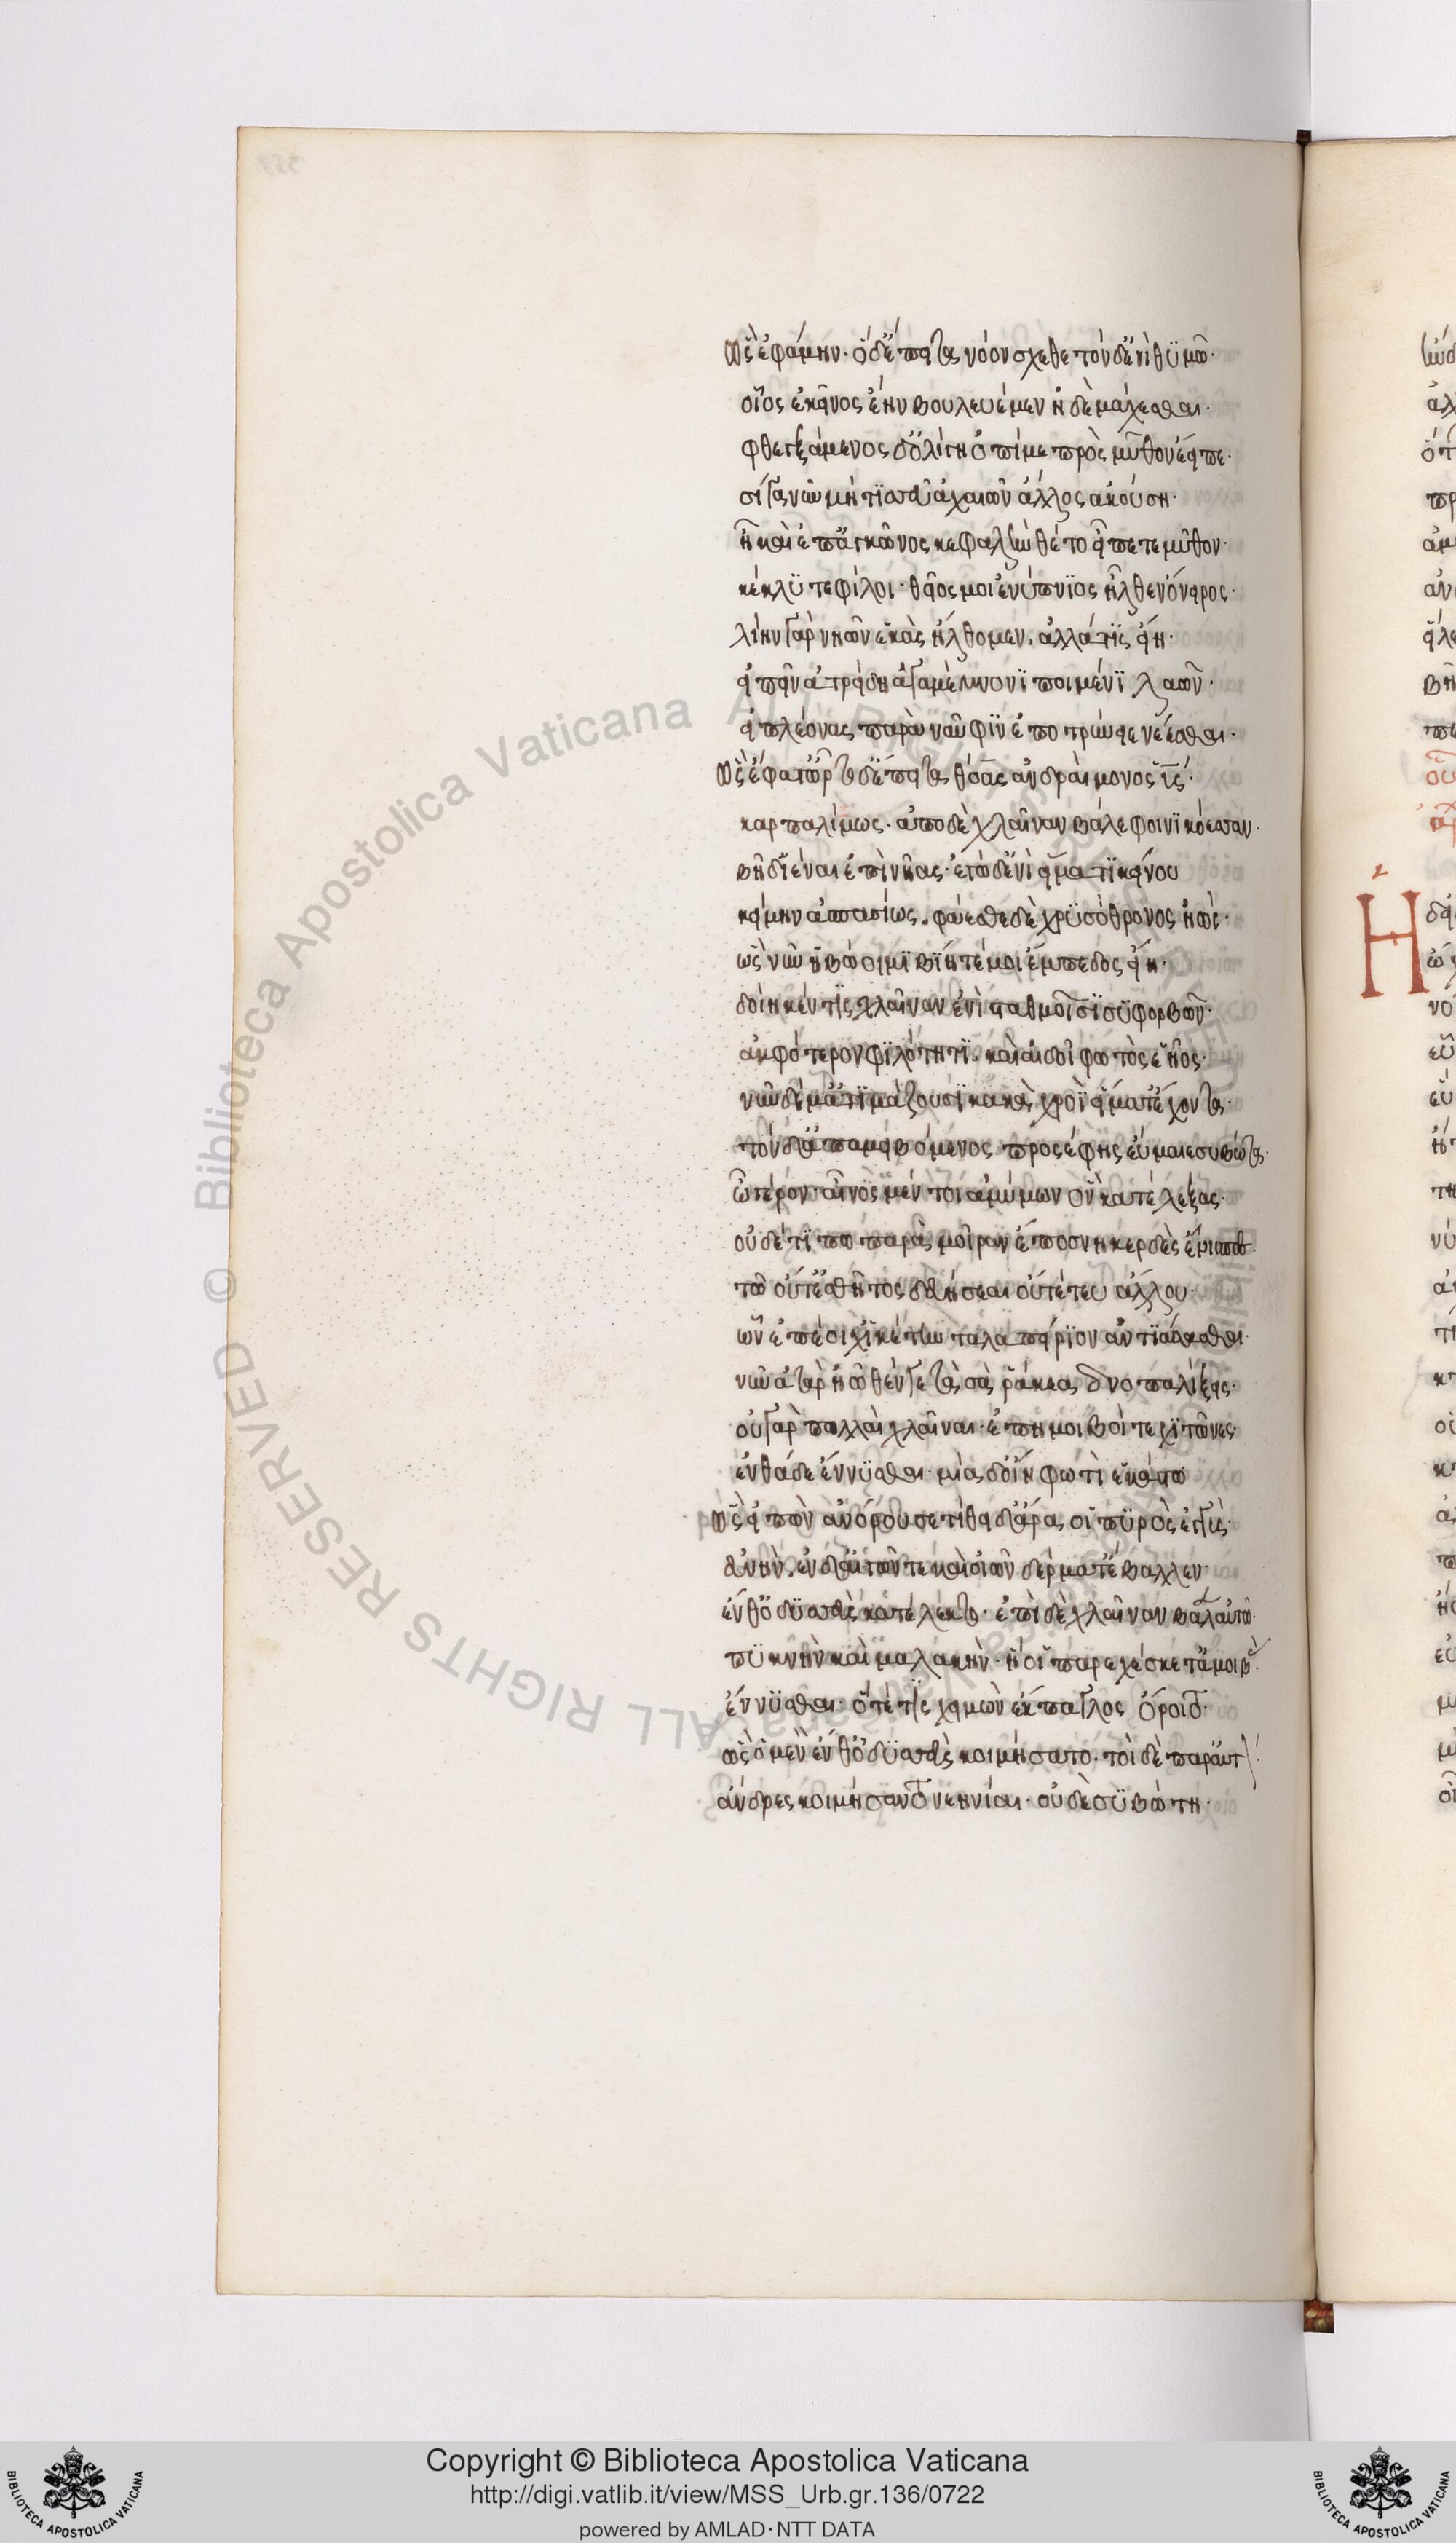 ὣς ἐφάμην· ὁ δ' ἔπειτα νόον σχέθε τόνδ' ἐνὶ θϋμῶ·
οἷος ἐκεῖνος ἔην βουλευέμεν ἠδὲ μάχεσθαι·
φθεγξάμενος δ' ὀλίγη ὀπί με πρὸς μῦθον ἔειπε·
σίγα νῦν μή τίς σευ ἀχαιῶν ἄλλος ἀκούση·
ἦ καὶ ἐπ' ἀγκῶνος κεφαλὴν θέτο εἶπέ τε μῦθον·
κέκλϋτε φίλοι· θεῖος μοι ἐνύπνϊος ἦλθεν ὄνειρος·
λίην γὰρ νηῶν ἑκὰς ἤλθομεν. ἀλλά τϊς εἴη·
εἰπεῖν ἀτρείδη ἀγαμέμνονϊ ποιμένϊ λαῶν·
εἰ πλέονας παρὰ ναῦφϊν ἐποτρώνειε νέεσθαι·
ὣς ἔφατ' ὦρτο δ' ἔπειτα θόας ἀνδραίμονος υἱός·
καρπαλίμως· ἀπὸ δὲ χλαῖναν βάλε φοινϊκόεσσαν·
βῆ δ' ἰέναι ἐπὶ νῆας· ἐγὼ δ' ἐνὶ εἵματϊ κείνου
κείμην ἀσπασίως. φάε δὲ χρϋσόθρονος ἠώς·
ὣς νῦν ἡβώοιμϊ βίη τέ μοι ἔμπεδος εἴη·
δοίη κέν τϊς χλαῖναν ἐνὶ σταθμοῖσϊ σϋφορβῶν·
ἀμφότερον φϊλότητϊ. καὶ αἰδοῖ φωτὸς ἑῆος·
νῦν δέ μ' ἀτϊμάζουσϊ κακὰ χροῒ εἵματ' ἔχοντα·
τὸν δ' ἀπαμειβόμενος προσέφης εὔμαιε συβῶτα·
ὦ γέρον· αἶνος μέν τοι ἀμύμων ὃν κατέλεξας·
οὐδέ τϊ πω παρὰ μοῖραν ἔπος νηκερδὲς ἔειπες·
τῶ οὔτ' ἐσθῆτος δευήσεαι οὔτέ τευ ἄλλου·
ὧν ἐπέοιχ' ἱκέτην ταλαπείρϊον ἀντϊάσασθαι·
νῦν ἀτὰρ ἠῶθέν γε τὰ σὰ ῥάκεα δνοπαλίξεις·
οὐ γὰρ πολλαὶ χλαῖναι· ἐπημοιβοί τε χϊτῶνες·
ἐνθάδε ἕννϋσθαι· μία δ' οἴη φωτὶ ἑκάστω
ὣς εἰπὼν ἀνόρουσε τίθει δ' ἄρα οἱ πϋρὸς ἐγγὺς·
εὐνήν. ἐν δ' ὀΐων τε καὶ αἰγῶν δέρματ' ἔβαλλεν·
ἔνθ' ὀδϋσσεὺς κατέλεκτο· ἐπὶ δὲ χλαῖναν βάλ' αὐτῶ·
πϋκνὴν καὶ μαλακὴν· ἥ οἱ παρεχέσκετ' ἀμοιβάς·
ἕννϋσθαι· ὅτέ τϊς χειμὼν ἔκπαγλος ὄροιτο·
ὣς ὁ μὲν ἔνθ' ὀδϋσσεὺς κοιμήσατο· τοὶ δὲ παρ' αὐτόν·
ἄνδρες κοιμήσαντο νεηνίαι· οὐδὲ σϋβώτη·